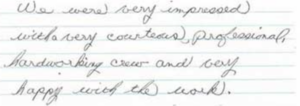 We were very impressed
with very courteous, professional,
hardworking crew and very
happy with the work.